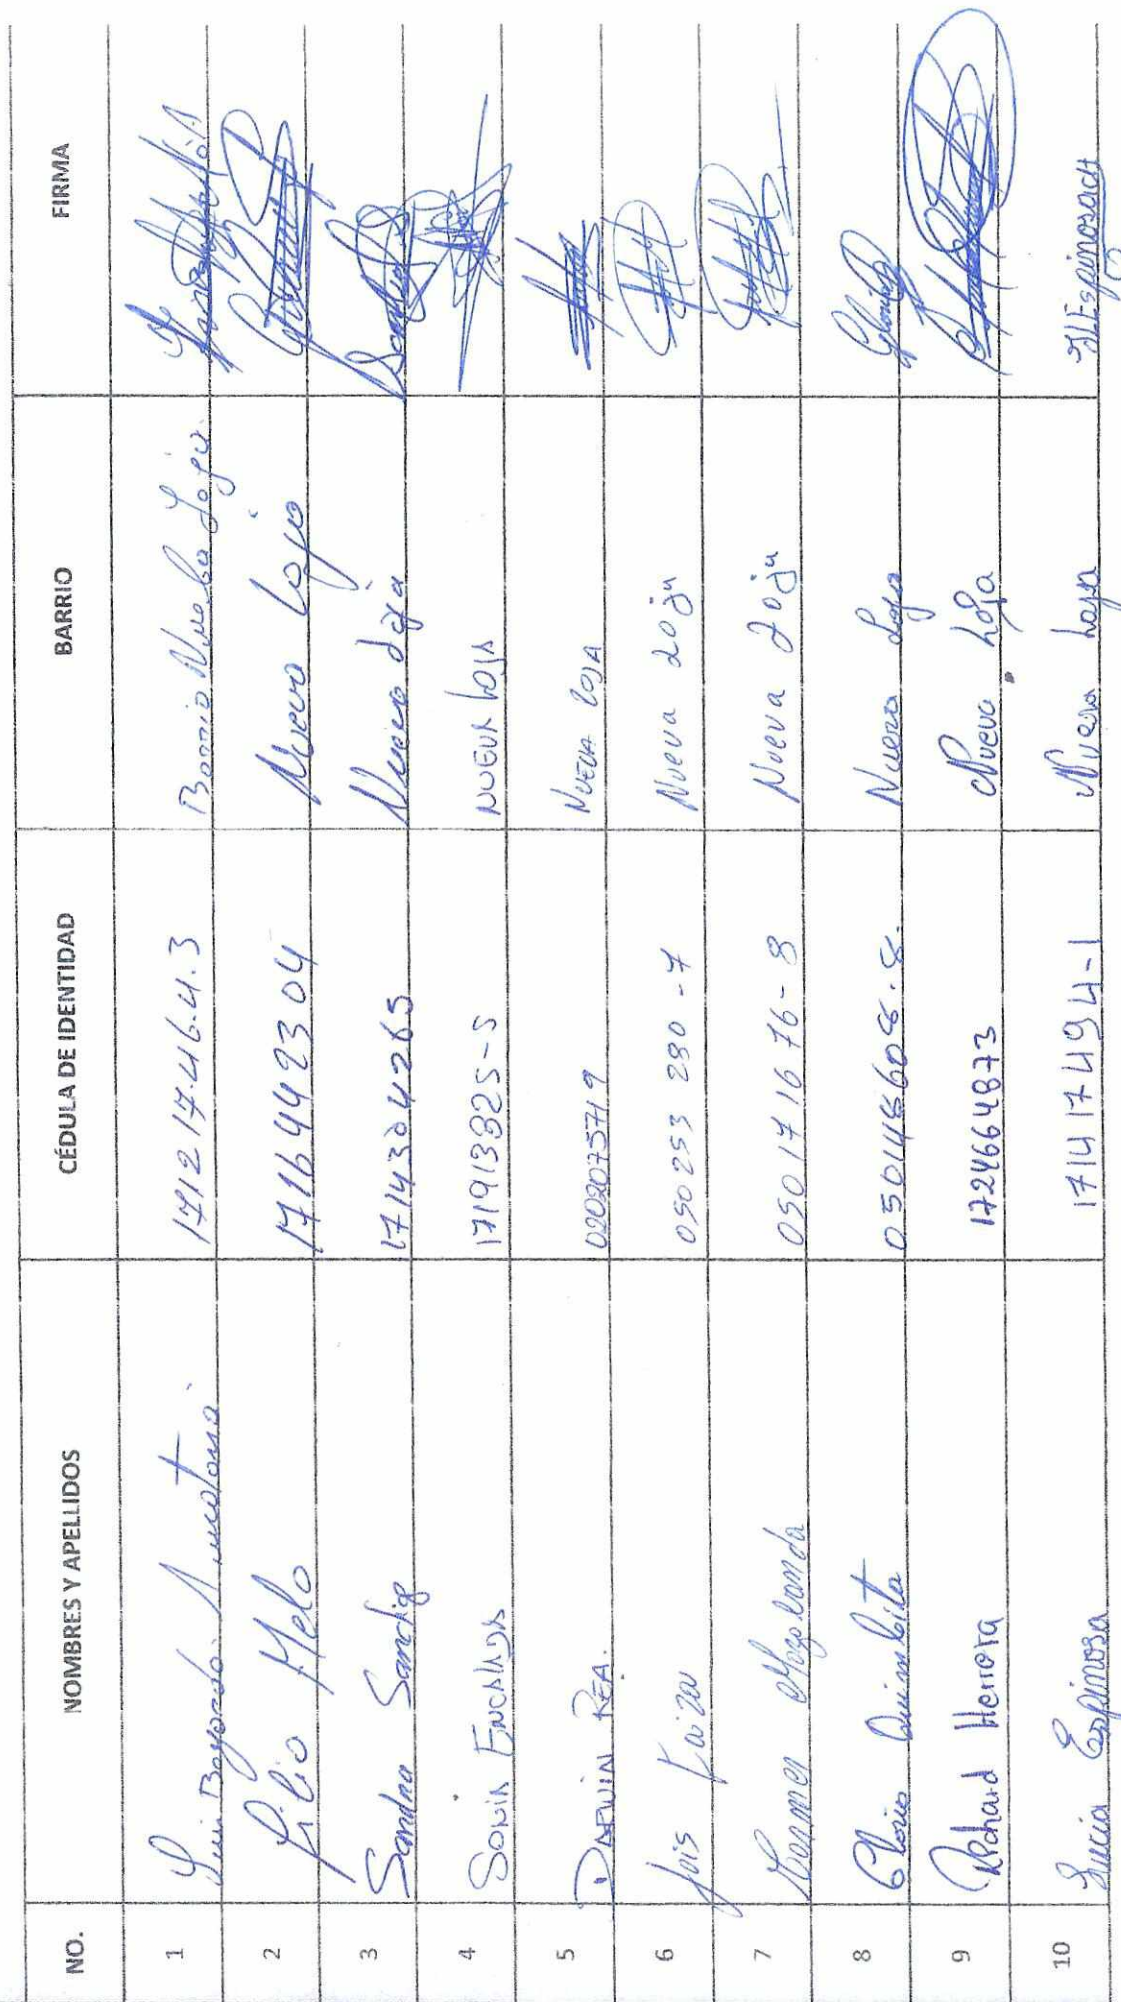 NO. NOMBRES Y APELLIDOS CÉDULA DE IDENTIDAD BARRIO FIRMA
1 Luis Bayardo 171217464.3 Barrio Nueba Loja.
2 Lilio Melo 1716449304 Nueva Loja
3 Sandra 1714304265 Nueva Loja Sandra
4 SONIA ENCALADA 171913825-5 NUEVA LOJA
5 DARWIN REA. 0202075719 NUEVA LOJA
6 Luis 050253280-7 Nueva Loja
7 Carmen 050171676-8 Nueva Loja
8 Gloria Quimbita 050148608.8. Nueva Loja Gloria
9 Richard Herrera 1724664873 Nueva Loja
10 Lucia Espinosa 171417494-1 Nueva Loja